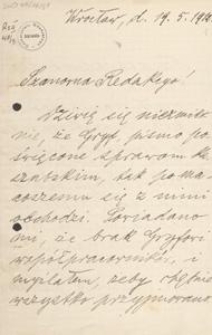 Wrocław, d. 19. 5. 191
Szanowna Redakcyo!
Dziwię się niezmier
nie, że Gryf, pismo po
święcone sprawom ka
szubskim, tak po ma
coszemu się z nimi
obchodzi. Powiadano
mi, że brak Gryfowi
współpracowników, i
myślałam, żeby chętnie
wszystko przyjmowano